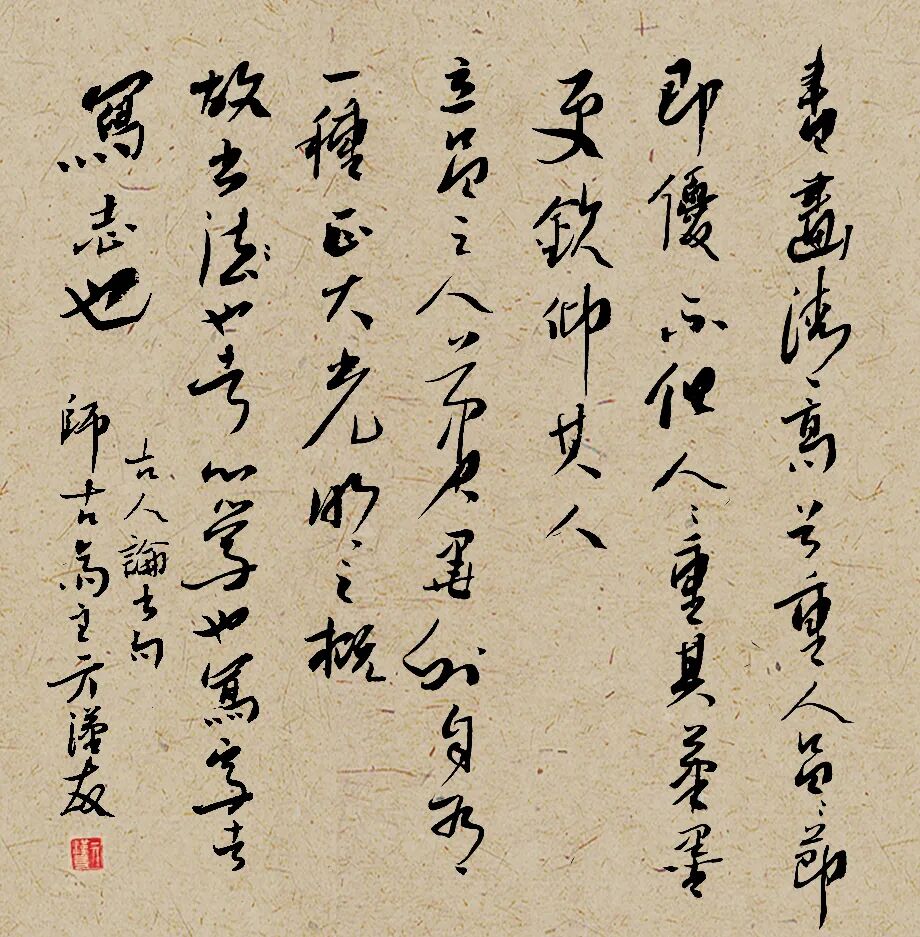 書畫清高首重人品〻節
即優不但人〻重其筆墨
更欽仰其人
立品之人筆墨外自有
一種正大光明之概
故書法也者心學也寫字者
寫志也
古人論書句
師古齋主亓漢友